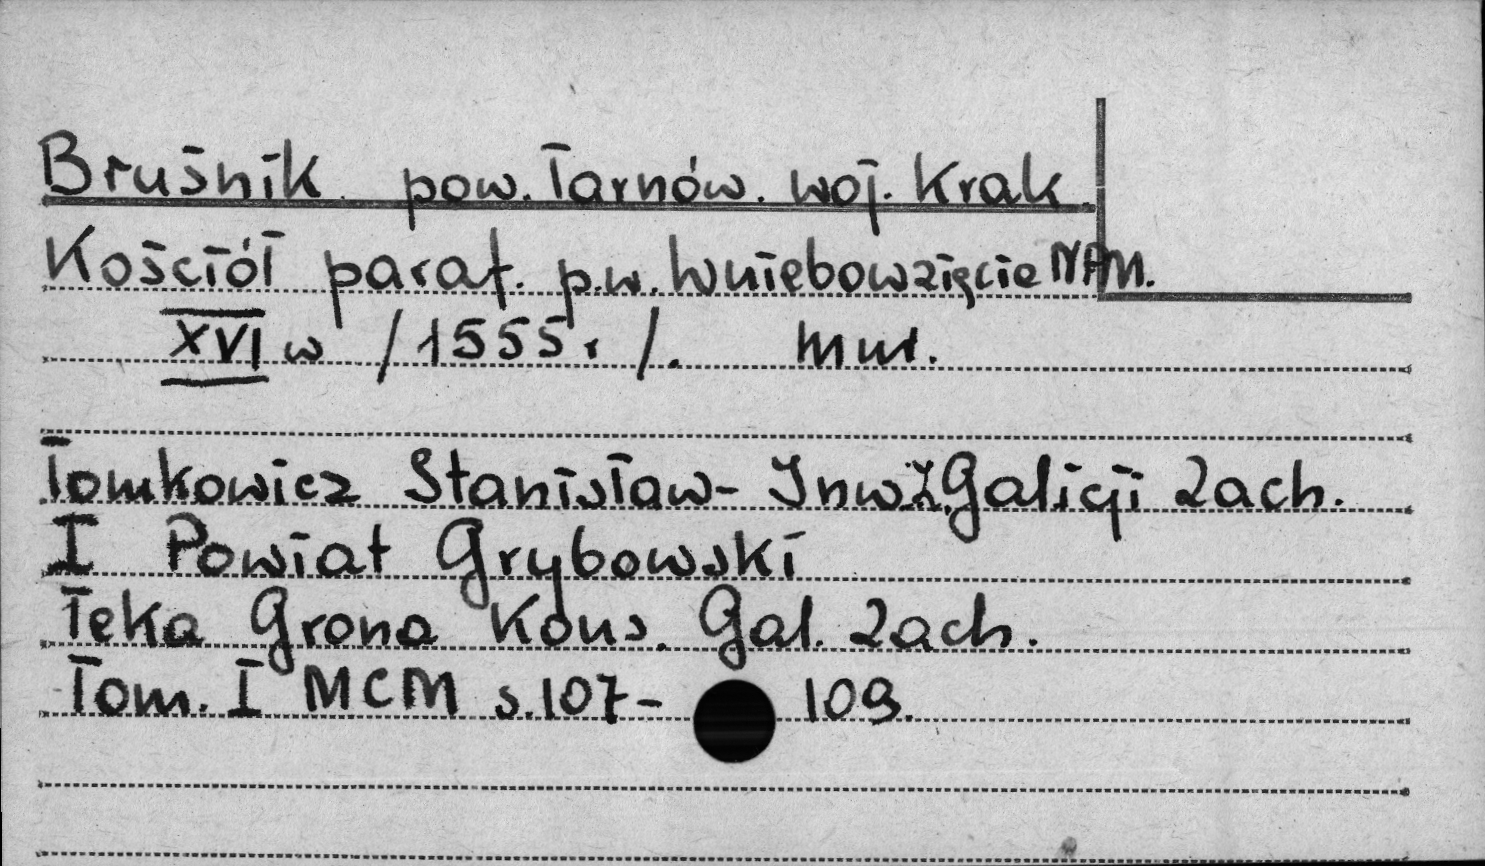 Bruśnik pow. Tarnów. woj. Krak.
Kościół paraf. p.w. Wniebowzięcie NPM.
XVI w /1555 r/. mur.
Tomkowicz Stanisław- Inw Z. Galicji Zach.
I Powiat Grybowski
Teka Grona Kons. Gal. Zach.
Tom. I MCM s.107- 109.